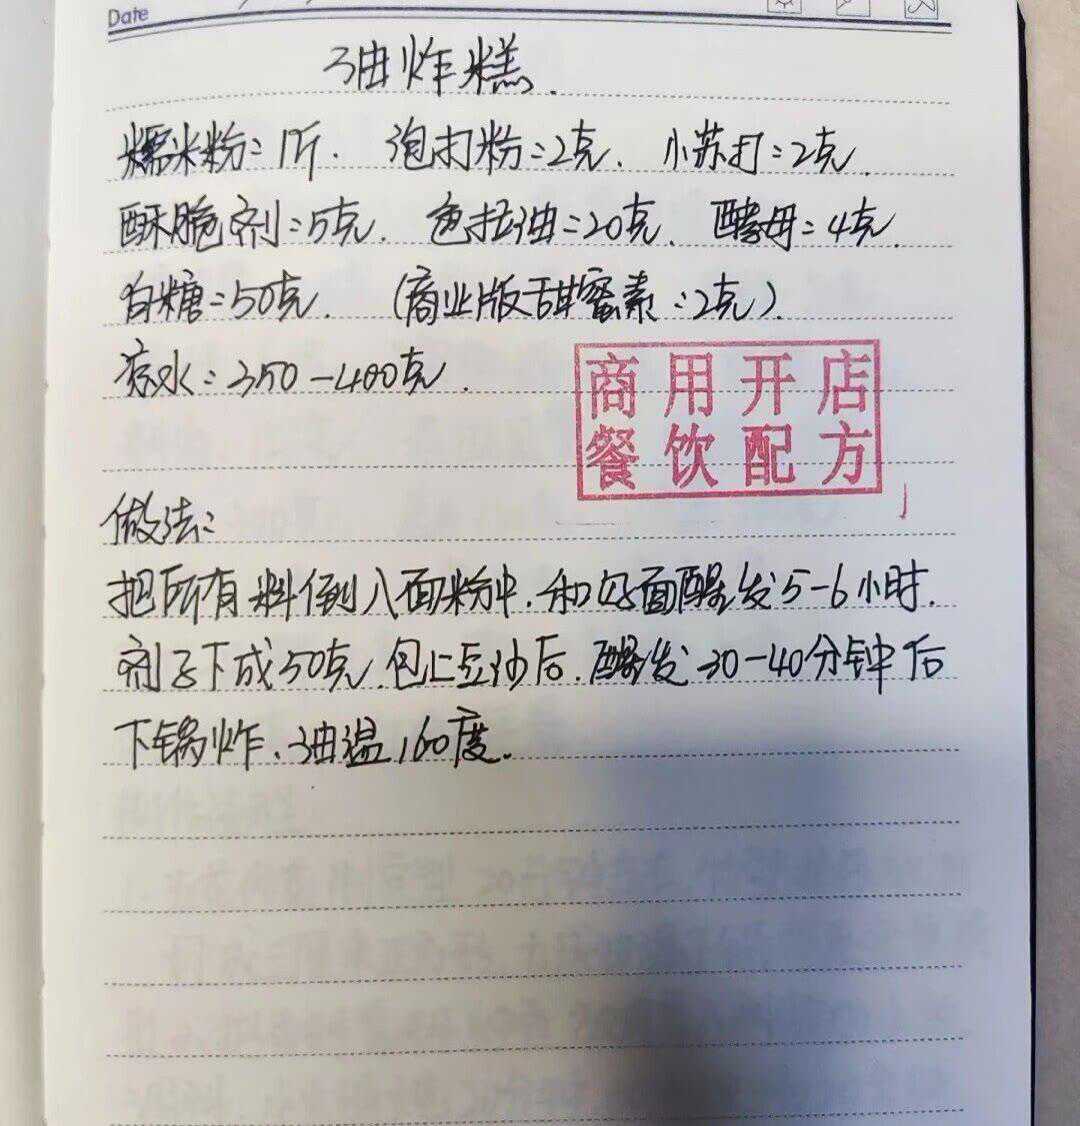 Date
油炸糕.
糯米粉:1斤. 泡打粉:2克. 小苏打:2克.
酥脆剂:5克. 色拉油:20克. 酵母:4克.
白糖:50克. (商业版甜蜜素:2克).
凉水:350-400克.
商用开店
餐饮配方
做法:
把所有料倒入面粉中.和好面醒发5-6小时.
剂子下成50克.包上豆沙后.醒发30-40分钟后
下锅炸.油温160度.